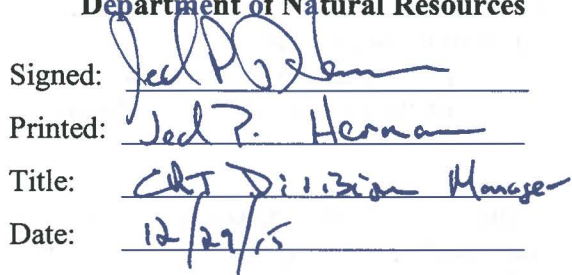 Department of Natural Resources
Signed:
Printed: Jed P. Herman
Title: Division Manager
Date: 12/29/15